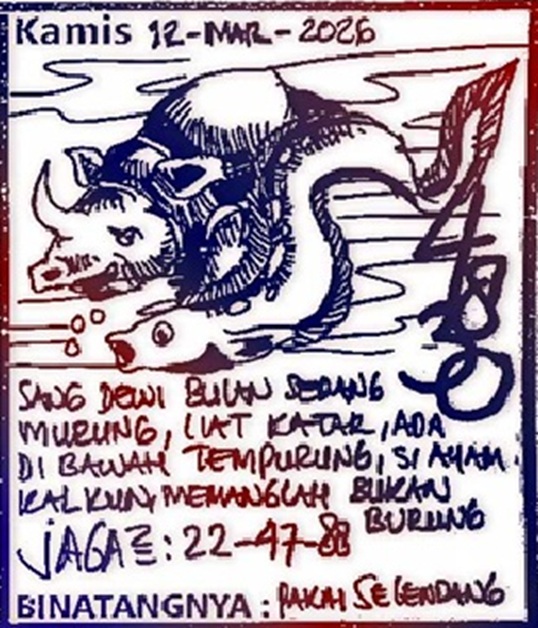 Kamis 12-MAR-2026
SANG DEWI BULAN SEDANG
MURUNG, LIAT KATAK, ADA
DI BAWAH TEMPURUNG, SI AYAM
KALKUN, MEMANGLAH BUKAN
BURUNG
JAGA2: 22-47-88
BINATANGNYA : PAKAI SELENDANG